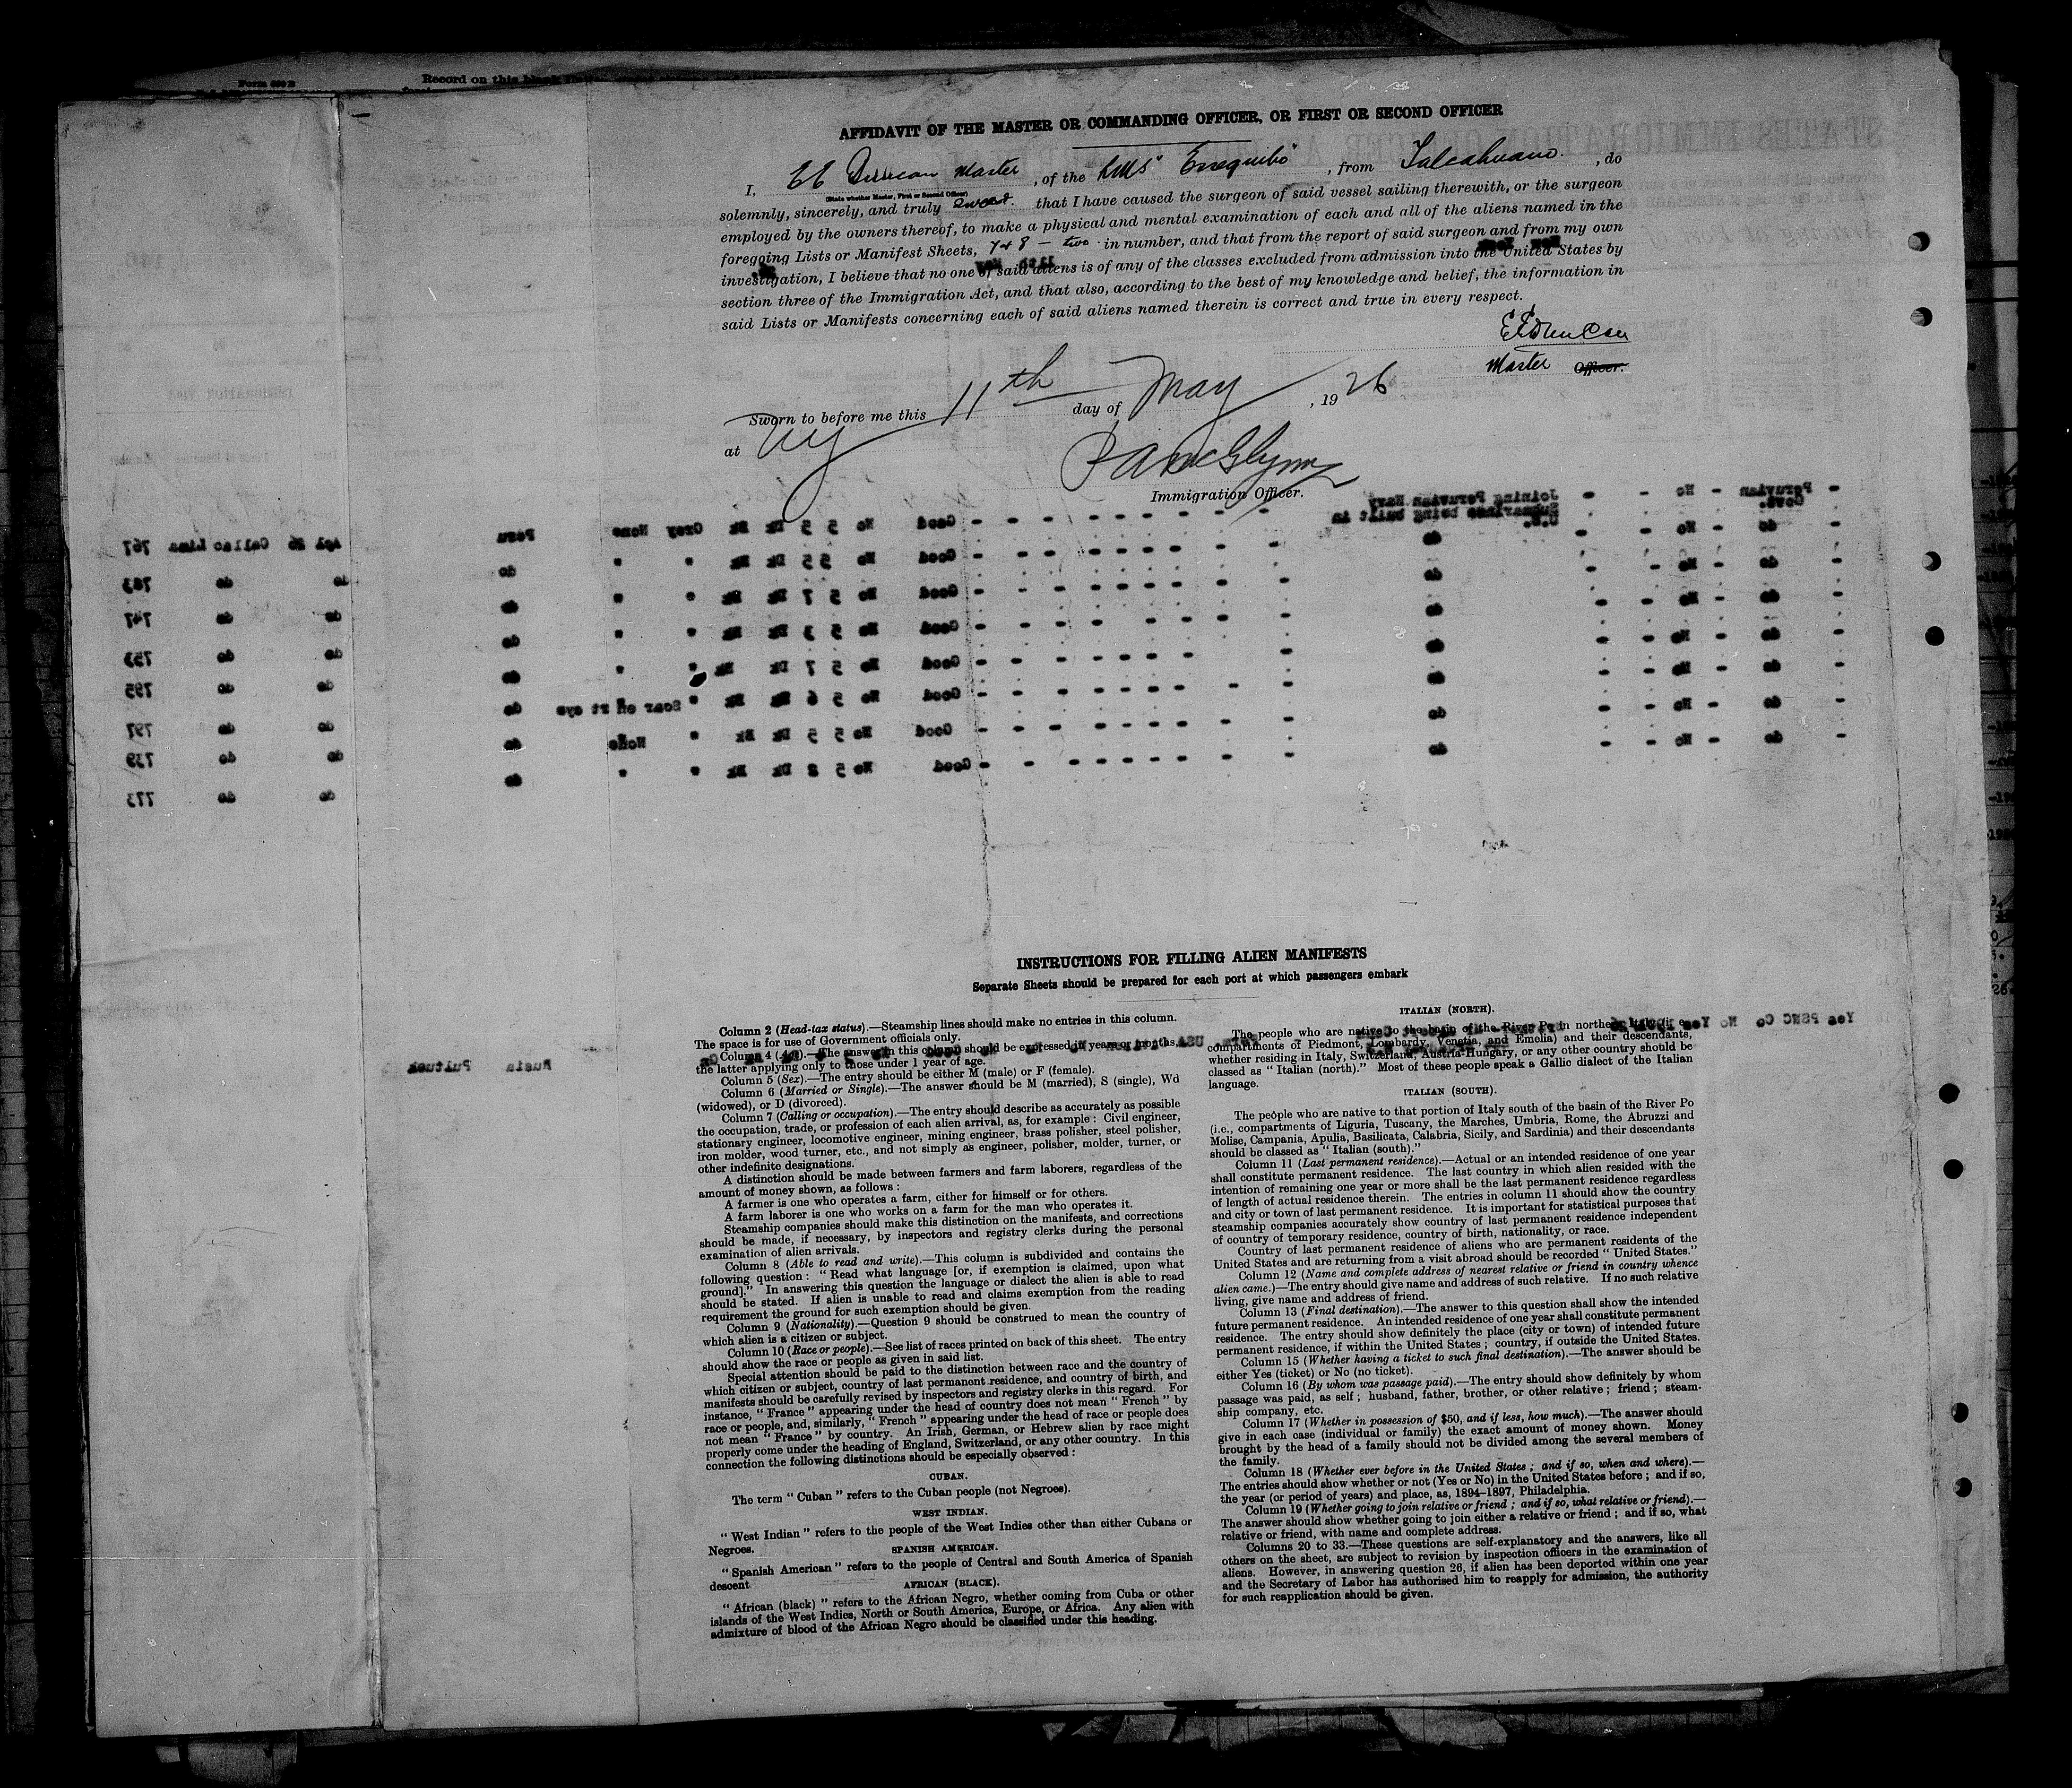 Form 630 B
Record on this blank
AFFIDAVIT OF THE MASTER OR COMMANDING OFFICER, OR FIRST OR SECOND OFFICER
I, E E Duncan Master, of the RMS "Essequibo", from Talcahuano., do
(State whether Master, First or Second Officer)
solemnly, sincerely, and truly swear that I have caused the surgeon of said vessel sailing therewith, or the surgeon
employed by the owners thereof, to make a physical and mental examination of each and all of the aliens named in the
foregoing Lists or Manifest Sheets, 7 & 8 — two in number, and that from the report of said surgeon and from my own
investigation, I believe that no one of said aliens is of any of the classes excluded from admission into the United States by
section three of the Immigration Act, and that also, according to the best of my knowledge and belief, the information in
said Lists or Manifests concerning each of said aliens named therein is correct and true in every respect.
E E Duncan
Master Officer.
Sworn to before me this 11th day of May, 1926
at NY
Immigration Officer.
Joining Peruvian Navy
Submarines being built in
U.S.
Peruvian
Govt.
767 Callao Lima Apl 26 Peru None Grey Bk Dk 5 5 No Good No
743 do do do " " Bk Dk 5 5 No Good do No do
747 do do do " " Bk 5 7 No Good do No do
753 do do do " " Bk Dk 5 3 No Good do No do
795 do do do " " Bk Dk 5 7 No Good do No do
797 do do do Scar on rt eye " Bk 5 6 No Good do No do
739 do do do None " Bk Dk 5 5 No Good do No do
773 do do do " " Bk Dk 5 8 No Good do No do
INSTRUCTIONS FOR FILLING ALIEN MANIFESTS
Separate Sheets should be prepared for each port at which passengers embark
Column 2 (Head-tax status).—Steamship lines should make no entries in this column.
The space is for use of Government officials only.
Column 4 (Age).—The answer in this column should be expressed in years or months,
the latter applying only to those under 1 year of age.
Column 5 (Sex).—The entry should be either M (male) or F (female).
Column 6 (Married or Single).—The answer should be M (married), S (single), Wd
(widowed), or D (divorced).
Column 7 (Calling or occupation).—The entry should describe as accurately as possible
the occupation, trade, or profession of each alien arrival, as, for example : Civil engineer,
stationary engineer, locomotive engineer, mining engineer, brass polisher, steel polisher,
iron molder, wood turner, etc., and not simply as engineer, polisher, molder, turner, or
other indefinite designations.
A distinction should be made between farmers and farm laborers, regardless of the
amount of money shown, as follows :
A farmer is one who operates a farm, either for himself or for others.
A farm laborer is one who works on a farm for the man who operates it.
Steamship companies should make this distinction on the manifests, and corrections
should be made, if necessary, by inspectors and registry clerks during the personal
examination of alien arrivals.
Column 8 (Able to read and write).—This column is subdivided and contains the
following question : " Read what language [or, if exemption is claimed, upon what
ground]." In answering this question the language or dialect the alien is able to read
should be stated. If alien is unable to read and claims exemption from the reading
requirement the ground for such exemption should be given.
Column 9 (Nationality).—Question 9 should be construed to mean the country of
which alien is a citizen or subject.
Column 10 (Race or people).—See list of races printed on back of this sheet. The entry
should show the race or people as given in said list.
Special attention should be paid to the distinction between race and the country of
which citizen or subject, country of last permanent residence, and country of birth, and
manifests should be carefully revised by inspectors and registry clerks in this regard. For
instance, " France " appearing under the head of country does not mean " French " by
race or people, and, similarly, " French " appearing under the head of race or people does
not mean " France " by country. An Irish, German, or Hebrew alien by race might
properly come under the heading of England, Switzerland, or any other country. In this
connection the following distinctions should be especially observed :
CUBAN.
The term " Cuban " refers to the Cuban people (not Negroes).
WEST INDIAN.
" West Indian " refers to the people of the West Indies other than either Cubans or
Negroes.
SPANISH AMERICAN.
" Spanish American " refers to the people of Central and South America of Spanish
descent
AFRICAN (BLACK).
" African (black) " refers to the African Negro, whether coming from Cuba or other
islands of the West Indies, North or South America, Europe, or Africa. Any alien with
admixture of blood of the African Negro should be classified under this heading.
ITALIAN (NORTH).
The people who are native to the basin of the River Po in northern Italy (i.e.,
compartments of Piedmont, Lombardy, Venetia, and Emelia) and their descendants,
whether residing in Italy, Switzerland, Austria-Hungary, or any other country should be
classed as " Italian (north)." Most of these people speak a Gallic dialect of the Italian
language.
ITALIAN (SOUTH).
The people who are native to that portion of Italy south of the basin of the River Po
(i.e., compartments of Liguria, Tuscany, the Marches, Umbria, Rome, the Abruzzi and
Molise, Campania, Apulia, Basilicata, Calabria, Sicily, and Sardinia) and their descendants
should be classed as " Italian (south)."
Column 11 (Last permanent residence).—Actual or an intended residence of one year
shall constitute permanent residence. The last country in which alien resided with the
intention of remaining one year or more shall be the last permanent residence regardless
of length of actual residence therein. The entries in column 11 should show the country
and city or town of last permanent residence. It is important for statistical purposes that
steamship companies accurately show country of last permanent residence independent
of country of temporary residence, country of birth, nationality, or race.
Country of last permanent residence of aliens who are permanent residents of the
United States and are returning from a visit abroad should be recorded " United States."
Column 12 (Name and complete address of nearest relative or friend in country whence
alien came.)—The entry should give name and address of such relative. If no such relative
living, give name and address of friend.
Column 13 (Final destination).—The answer to this question shall show the intended
future permanent residence. An intended residence of one year shall constitute permanent
residence. The entry should show definitely the place (city or town) of intended future
permanent residence, if within the United States ; country, if outside the United States.
Column 15 (Whether having a ticket to such final destination).—The answer should be
either Yes (ticket) or No (no ticket).
Column 16 (By whom was passage paid).—The entry should show definitely by whom
passage was paid, as self ; husband, father, brother, or other relative ; friend ; steam-
ship company, etc.
Column 17 (Whether in possession of $50, and if less, how much).—The answer should
give in each case (individual or family) the exact amount of money shown. Money
brought by the head of a family should not be divided among the several members of
the family.
Column 18 (Whether ever before in the United States ; and if so, when and where).—
The entries should show whether or not (Yes or No) in the United States before ; and if so,
the year (or period of years) and place, as, 1894-1897, Philadelphia.
Column 19 (Whether going to join relative or friend ; and if so, what relative or friend).—
The answer should show whether going to join either a relative or friend ; and if so, what
relative or friend, with name and complete address.
Columns 20 to 33.—These questions are self-explanatory and the answers, like all
others on the sheet, are subject to revision by inspection officers in the examination of
aliens. However, in answering question 26, if alien has been deported within one year
and the Secretary of Labor has authorised him to reapply for admission, the authority
for such reapplication should be given.
Yes PSNC Co No Yes
Rusia Pultuck